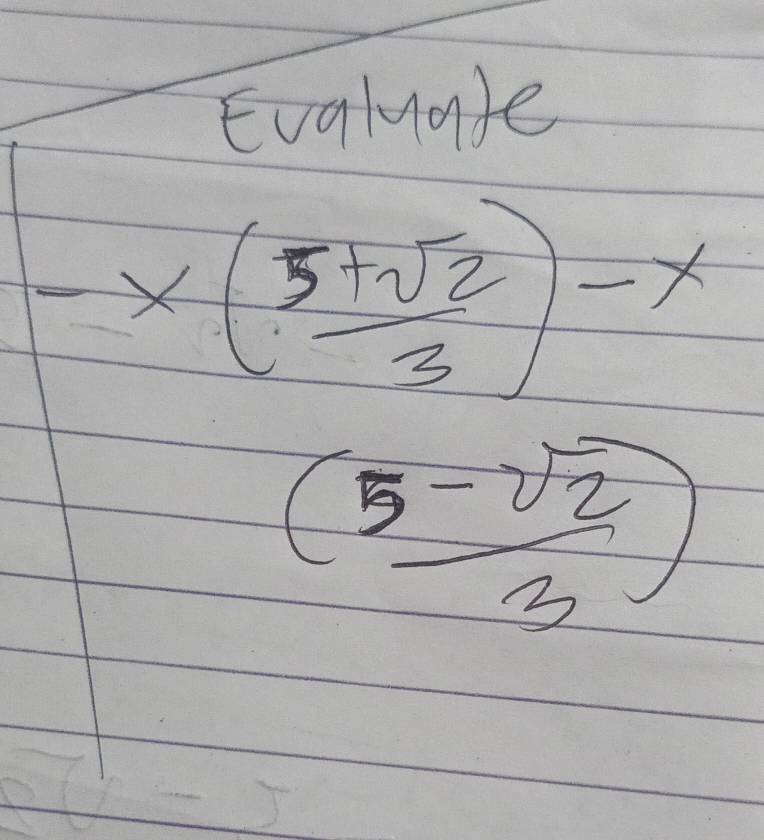 Evaluate
- x (5+√2/3) - x
(5-√2/3)